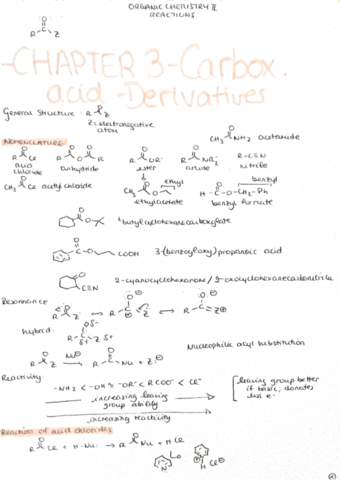 ORGANIC CHEMISTRY II
REACTIONS
-CHAPTER 3-Carbox.
acid -Derivatives
General Structure:
R Z
Z: electronegative
atom
CH₃ NH₂ acetamide
NOMENCLATURE:
R Cl R O R R OR' R NR₂' R-C≡N
acid chloride anhydride ester amide nitrile
CH₃ Cl acetyl chloride
ethyl
CH₃ O
ethylacetate
benzyl
H-C-O-CH₂-Ph
benzyl formate
t-butylcyclohexanecarboxylate
COOH 3-(benzoyloxy)propanoic acid
C≡N 2-cyanocyclohexanone / 2-oxocyclohexanecarbonitrile
Resonance
R Z ↔ R-C Z ↔ R-C=Z⊕
hybrid:
R-C Z δ+
R Z → R-C-Nu + Z:⊖
Nucleophilic acyl substitution
Reactivity
-NH₂ < -OH ≈ -OR' < RCOO⁻ < Cl⁻
increasing leaving
group ability
increasing reactivity
leaving group better
if basic; donates
less e⁻
Reactions of acid chlorides
R Cl + H-Nu: → R Nu + HCl